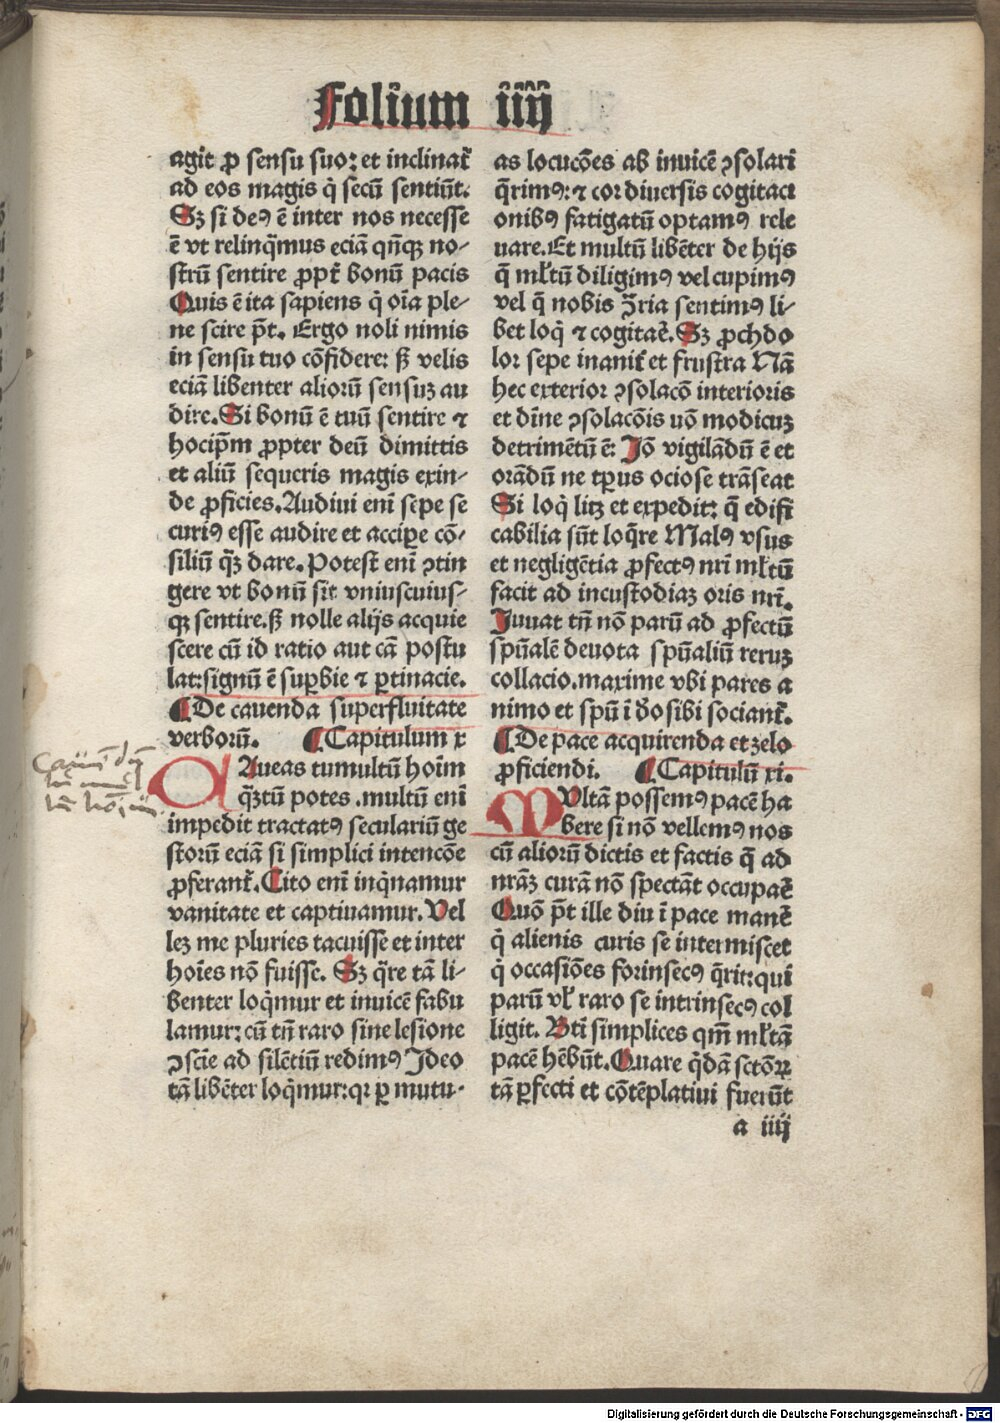 Folium iiij
agit ꝓ sensu suo: et inclinat᷑
ad eos magis q̇ secū sentiūt.
Sꝫ si deꝰ ē inter nos necesse
ē vt relinq̄mus eciā qn̄qꝫ no-
strū sentire ꝓpt᷑ bonū pacis
Quis ē ita sapiens q̇ oīa ple-
ne scire p̄t. Ergo noli nimis
in sensu tuo cōfidere: ß velis
eciā libenter aliorū sensuꝫ au
dire. Si bonū ē tuū sentire ⁊
hocip̄m ꝓpter deū dimittis
et aliū sequeris magis exin-
de ꝓficies. Audiui enī sepe se
curiꝰ esse audire et acciꝑe cō-
siliū q̄ꝫ dare. Potest enī ꝯtin
gere vt bonū sit vniuscuius-
qꝫ sentire. ß nolle alijs acquie
scere cū id ratio aut cā postu
lat: signū ē suꝑbie ⁊ ꝑtinacie.
¶ De cauenda superfluitate
verborū. ¶ Capitulum x
CAueas tumultū hoīm
q̄ꝫtū potes . multū enī
impedit tractatꝰ seculariū ge
storū eciā si simplici intencōe
ꝓferant᷑. Cito enī inq̇namur
vanitate et captiuamur. Vel
leꝫ me pluries tacuisse et inter
hoīes nō fuisse. Sꝫ q̄re tā li-
benter loq̇mur et inuicē fabu
lamur: cū tn̄ raro sine lesione
ꝯscīe ad silētiū redimꝰ Ideo
tā libēter loq̇mur: qꝛ ꝑ mutu-
as locucōes ab inuicē ꝯsolari
q̄rimꝰ: ⁊ cor diuersis cogitaci
onibꝰ fatigatū optamꝰ rele
uare. Et multū libēter de hijs
q̄ ml̄tū diligimꝰ vel cupimꝰ
vel q̄ nobis ꝯ̄ria sentimꝰ li-
bet loq̇ ⁊ cogitar̄. Sꝫ ꝓchdo
lor sepe inanit᷑ et frustra Nā
hec exterior ꝯsolacō interioris
et dīne ꝯsolacōis uō modicuꝫ
detrimētū ē: Iō vigilādū ē et
orādū ne tꝑus ociose trāseat
Si loq̇ litꝫ et expedit: q̄ edifi
cabilia sūt loq̄re Malꝰ vsus
et negligētia ꝓfectꝰ nr̄i ml̄tū
facit ad incustodiaꝫ oris nr̄i.
Iuuat tn̄ nō parū ad ꝓfectū
spūalē deuota spūaliū reruꝫ
collacio. maxime vbi pares a
nimo et spū ī do sibi sociant᷑.
¶ De pace acquirenda et zelo
ꝓficiendi. ¶ Capitulū xi.
MUltā possemꝰ pacē ha
bere si nō vellemꝰ nos
cū aliorū dictis et factis q̄ ad
nrāꝫ curā nō spectāt occupar̄
Quō p̄t ille diu ī pace manē
q̇ alienis curis se intermiscet
q̇ occasiōes forinsecꝰ q̄rit: qui
parū vl̄ raro se intrinsecꝰ col
ligit. Bt̄i simplices qm̄ ml̄tā
pacē hēbūt. Quare q̇dā sctōꝝ
tā ꝑfecti et cōtēplatiui fuerūt
a iiij
Digitalisierung gefördert durch die Deutsche Forschungsgemeinschaft - DFG